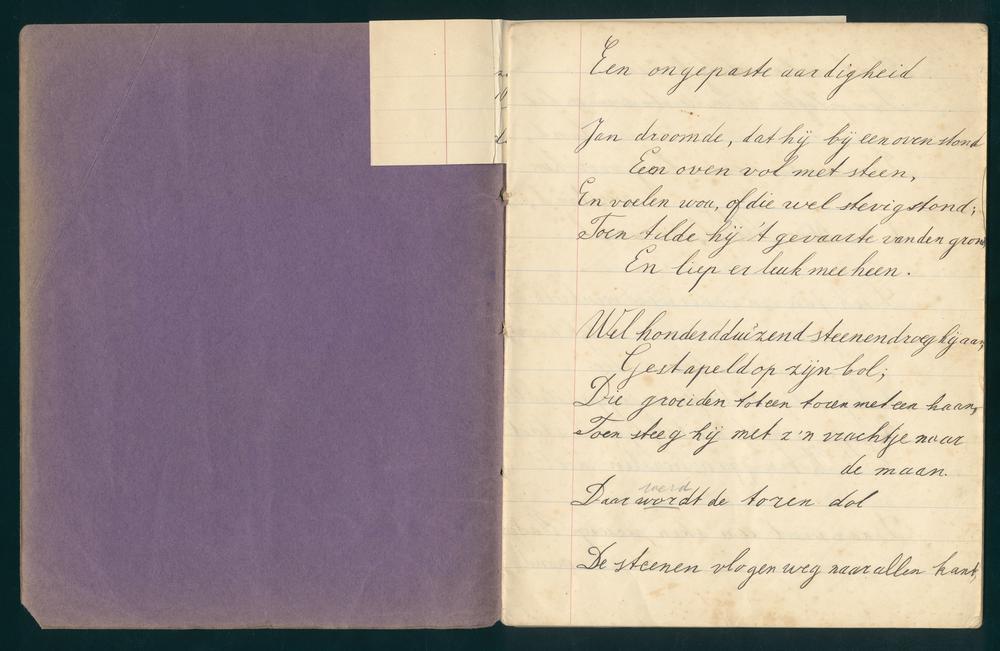 Een ongepaste aardigheid
Jan droomde, dat hij bij een oven stond
Een oven vol met steen,
En voelen wou, of die wel stevig stond;
Toen tilde hij 't gevaarte van den grond
En liep er leuk mee heen.
Wel honderdduizend steenen droeg hij aan,
Gestapeld op zijn bol;
Die groeiden tot een toren met een haan,
Toen steeg hij met z'n vrachtje naar
de maan.
werd
Daar wordt de toren dol
De steenen vlogen weg naar allen kant,